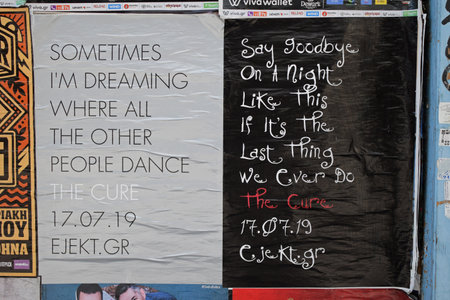 SOMETIMES
I'M DREAMING
WHERE ALL
THE OTHER
PEOPLE DANCE
THE CURE
17.07.19
EJEKT.GR
vivawallet
Say Goodbye
On A Night
Like This
If It's The
Last Thing
We Ever Do
The Cure
17.07.19
Ejekt.gr